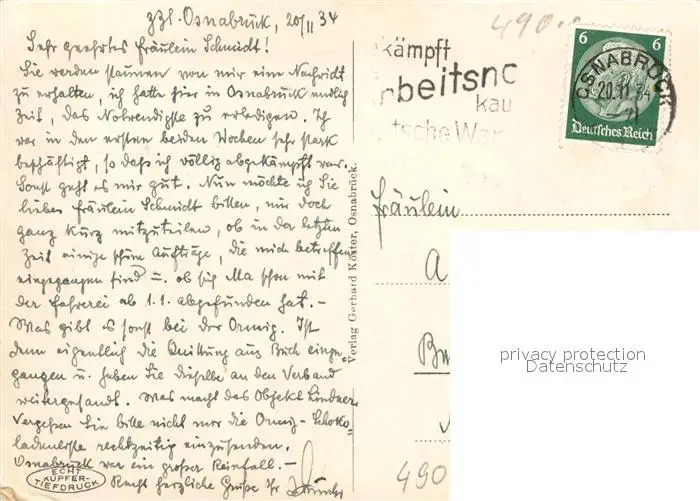 zzl. Osnabrück, 20/11 34
Sehr geehrtes Fräulein Schmidt!
Sie werden staunen von mir eine Nachricht
zu erhalten, ich hatte hier in Osnabrück endlich
Zeit, das Notwendigste zu erledigen. Ich
war in den ersten beiden Wochen sehr stark
beschäftigt, so daß ich völlig abgekämpft war.
Sonst geht es mir gut. Nun möchte ich Sie
liebes Fräulein Schmidt bitten, mir doch
ganz kurz mitzuteilen, ob in der letzten
Zeit einige schöne Aufträge, die mich betreffen
eingegangen sind u. ob sich Ma schon mit
der Fahrerei ab 1.1. abgefunden hat. –
Was gibt es sonst bei der Ormig. Ist
denn eigentlich die Quittung aus Buch einge-
gangen u. haben Sie dieselbe an den Verband
weitergesandt. Was macht das Objekt Lindner.
Vergessen Sie bitte nicht mir die Ormig-Schoko-
ladenliste rechtzeitig einzusenden.
Osnabrück war ein großer Reinfall. –
Recht herzliche Grüße Ihr
ECHT
KUPFER-
TIEFDRUCK
Verlag Gerhard Köster, Osnabrück.
490
kämpft
rbeitsno
kau
tsche War
6 6
Deutsches Reich
OSNABRÜCK
20.11.34
Fräulein
A
490
privacy protection
Datenschutz